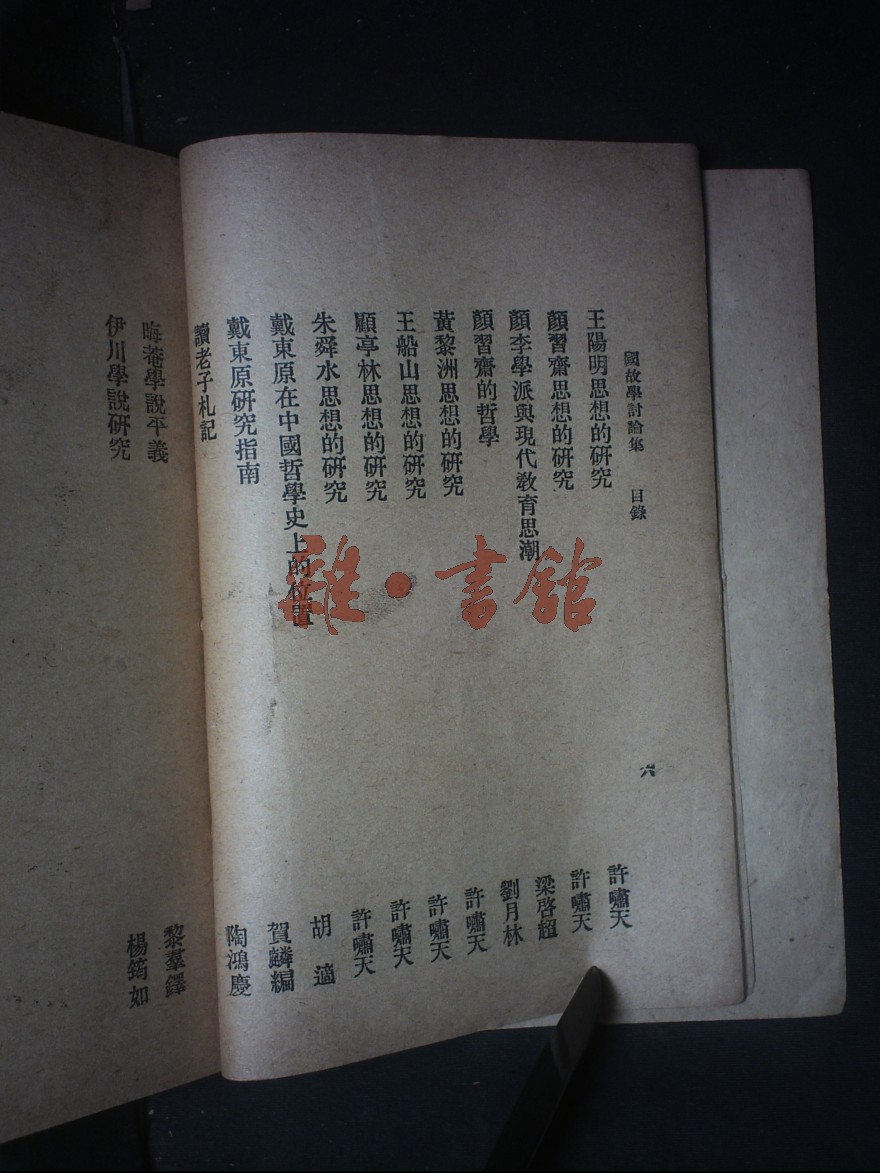 國故學討論集 目錄 六
王陽明思想的研究 許嘯天
顏習齋思想的研究 許嘯天
顏李學派與現代教育思潮 梁啓超
顏習齋的哲學 劉月林
黃黎洲思想的研究 許嘯天
王船山思想的研究 許嘯天
顧亭林思想的研究 許嘯天
朱舜水思想的研究 許嘯天
戴東原在中國哲學史上的位置 胡適
戴東原研究指南 賀麟編
讀老子札記 陶鴻慶
晦菴學說平義 黎羣鐸
伊川學說研究 楊筠如
雜·書館